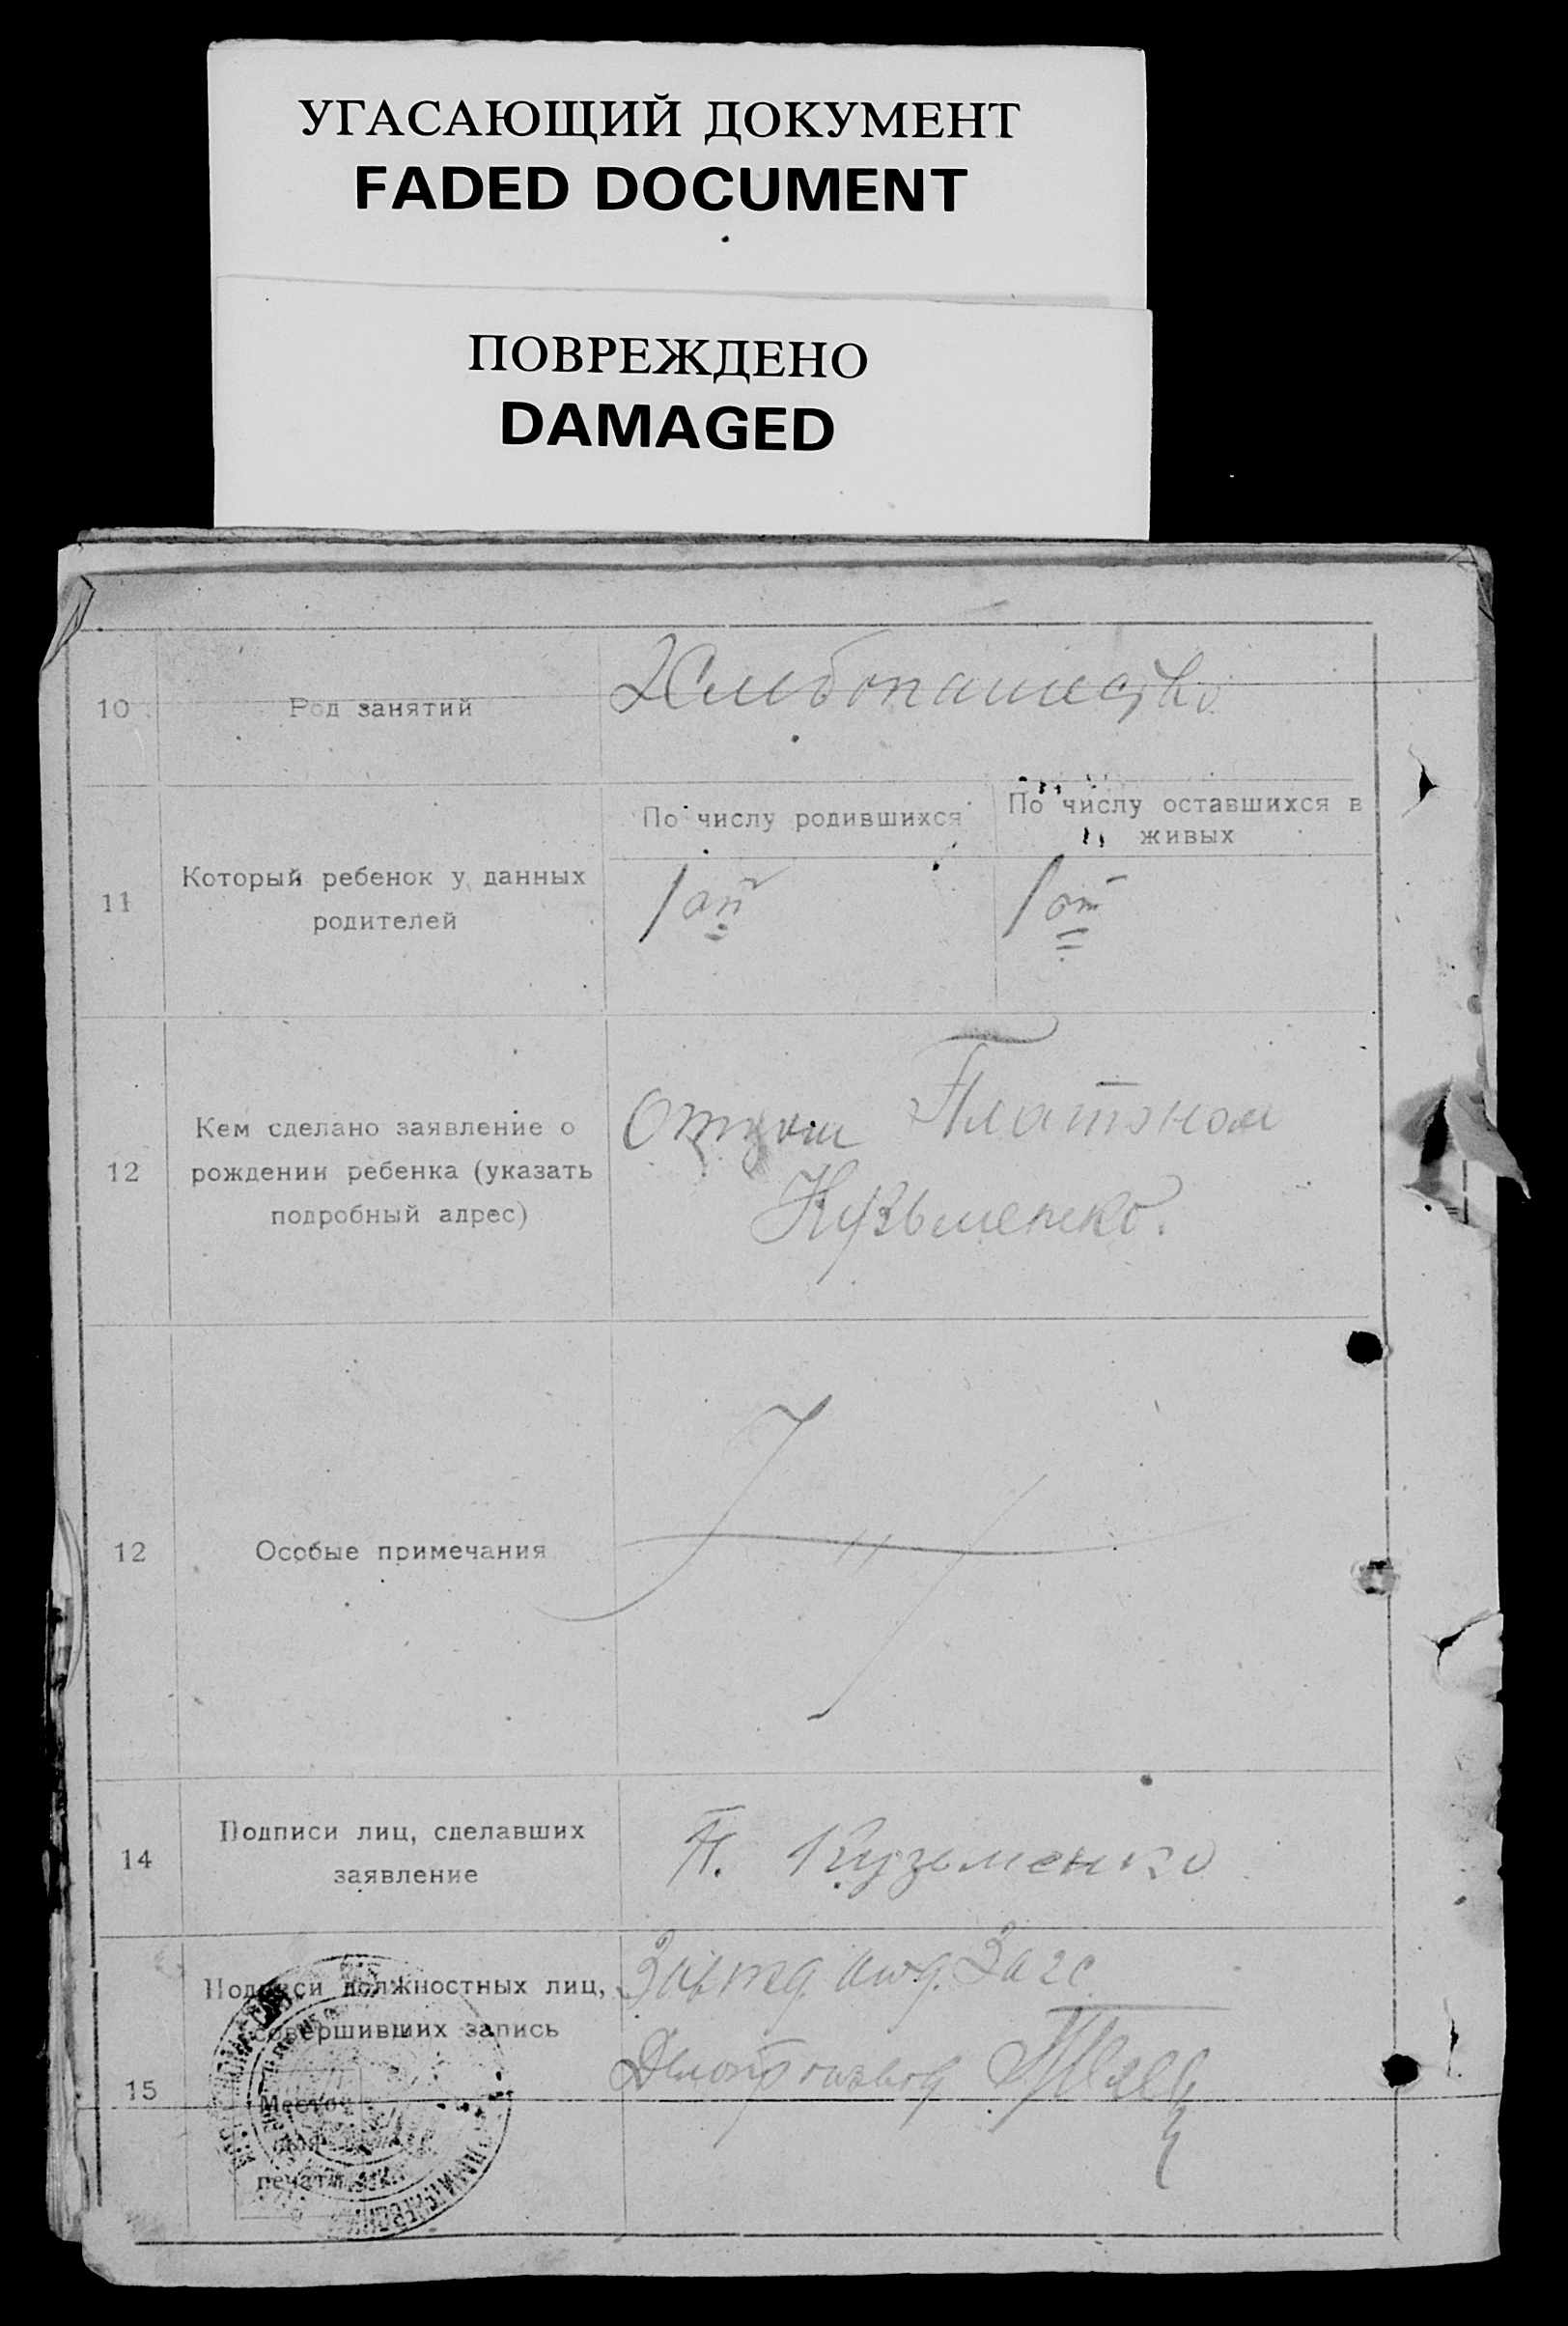 УГАСАЮЩИЙ ДОКУМЕНТ
FADED DOCUMENT
ПОВРЕЖДЕНО
DAMAGED
10 Род занятий Хлебопашество
По числу родившихся По числу оставшихся в
живых
11 Который ребенок у данных
родителей
1ый 1
12 Кем сделано заявление о
рождении ребенка (указать
подробный адрес)
Отцом Платоном
Кузьменко.
12 Особые примечания
14 Подписи лиц, сделавших
заявление
П. Кузьменко
15 Подписи должностных лиц,
совершивших запись
Загс
Делопроизвод
Место
для
печати